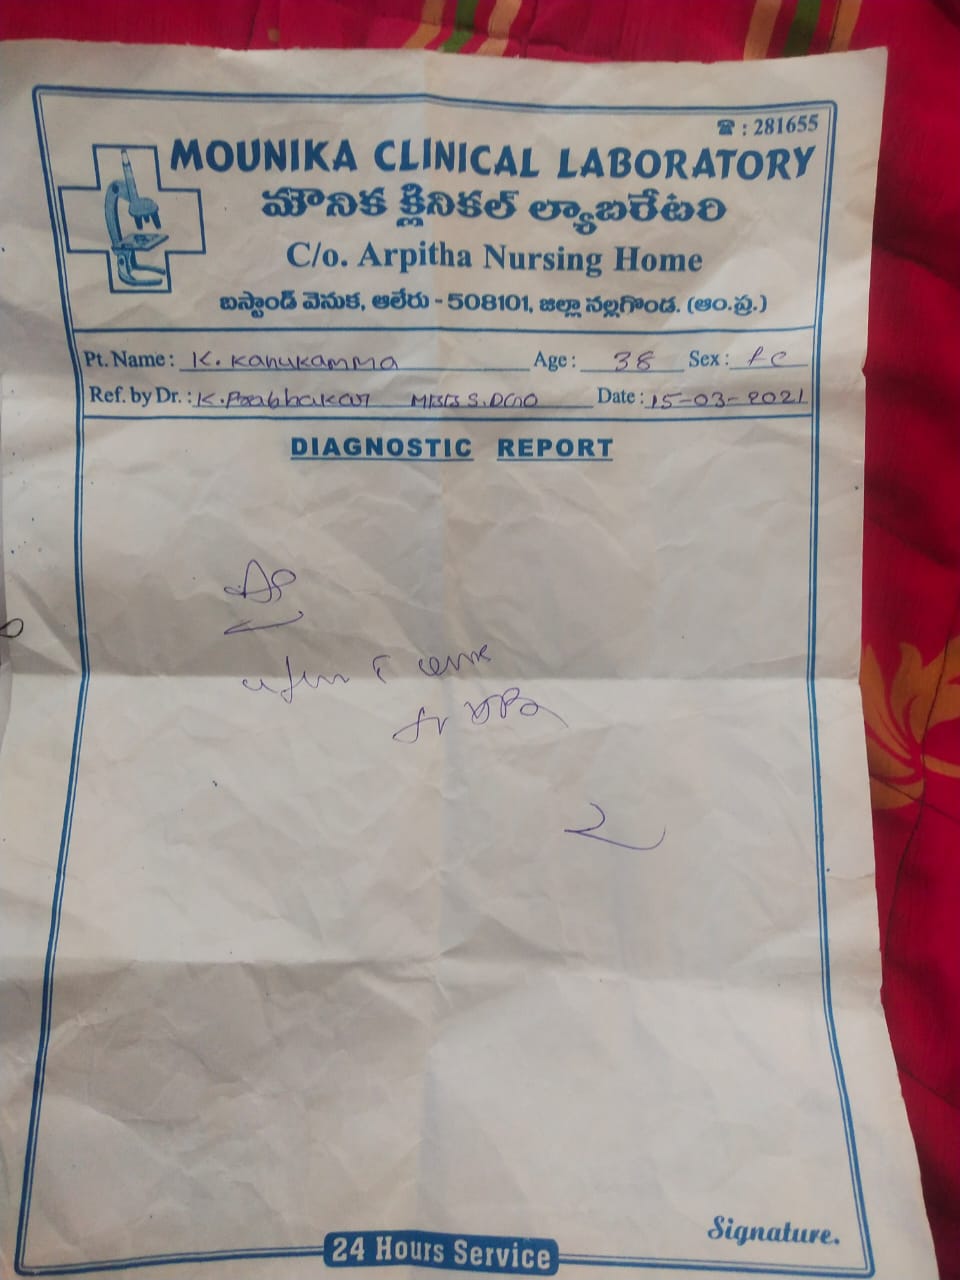 ☎ : 281655
MOUNIKA CLINICAL LABORATORY
మౌనిక క్లినికల్ ల్యాబరేటరి
C/o. Arpitha Nursing Home
బస్టాండ్ వెనుక, ఆలేరు - 508101, జిల్లా నల్లగొండ. (ఆం.ప్ర.)
Pt. Name : K. Kanukamma Age : 38 Sex : Fe
Ref. by Dr. : K. Prabhakar MBBS.DGO Date : 15-03-2021
DIAGNOSTIC REPORT
Signature.
24 Hours Service